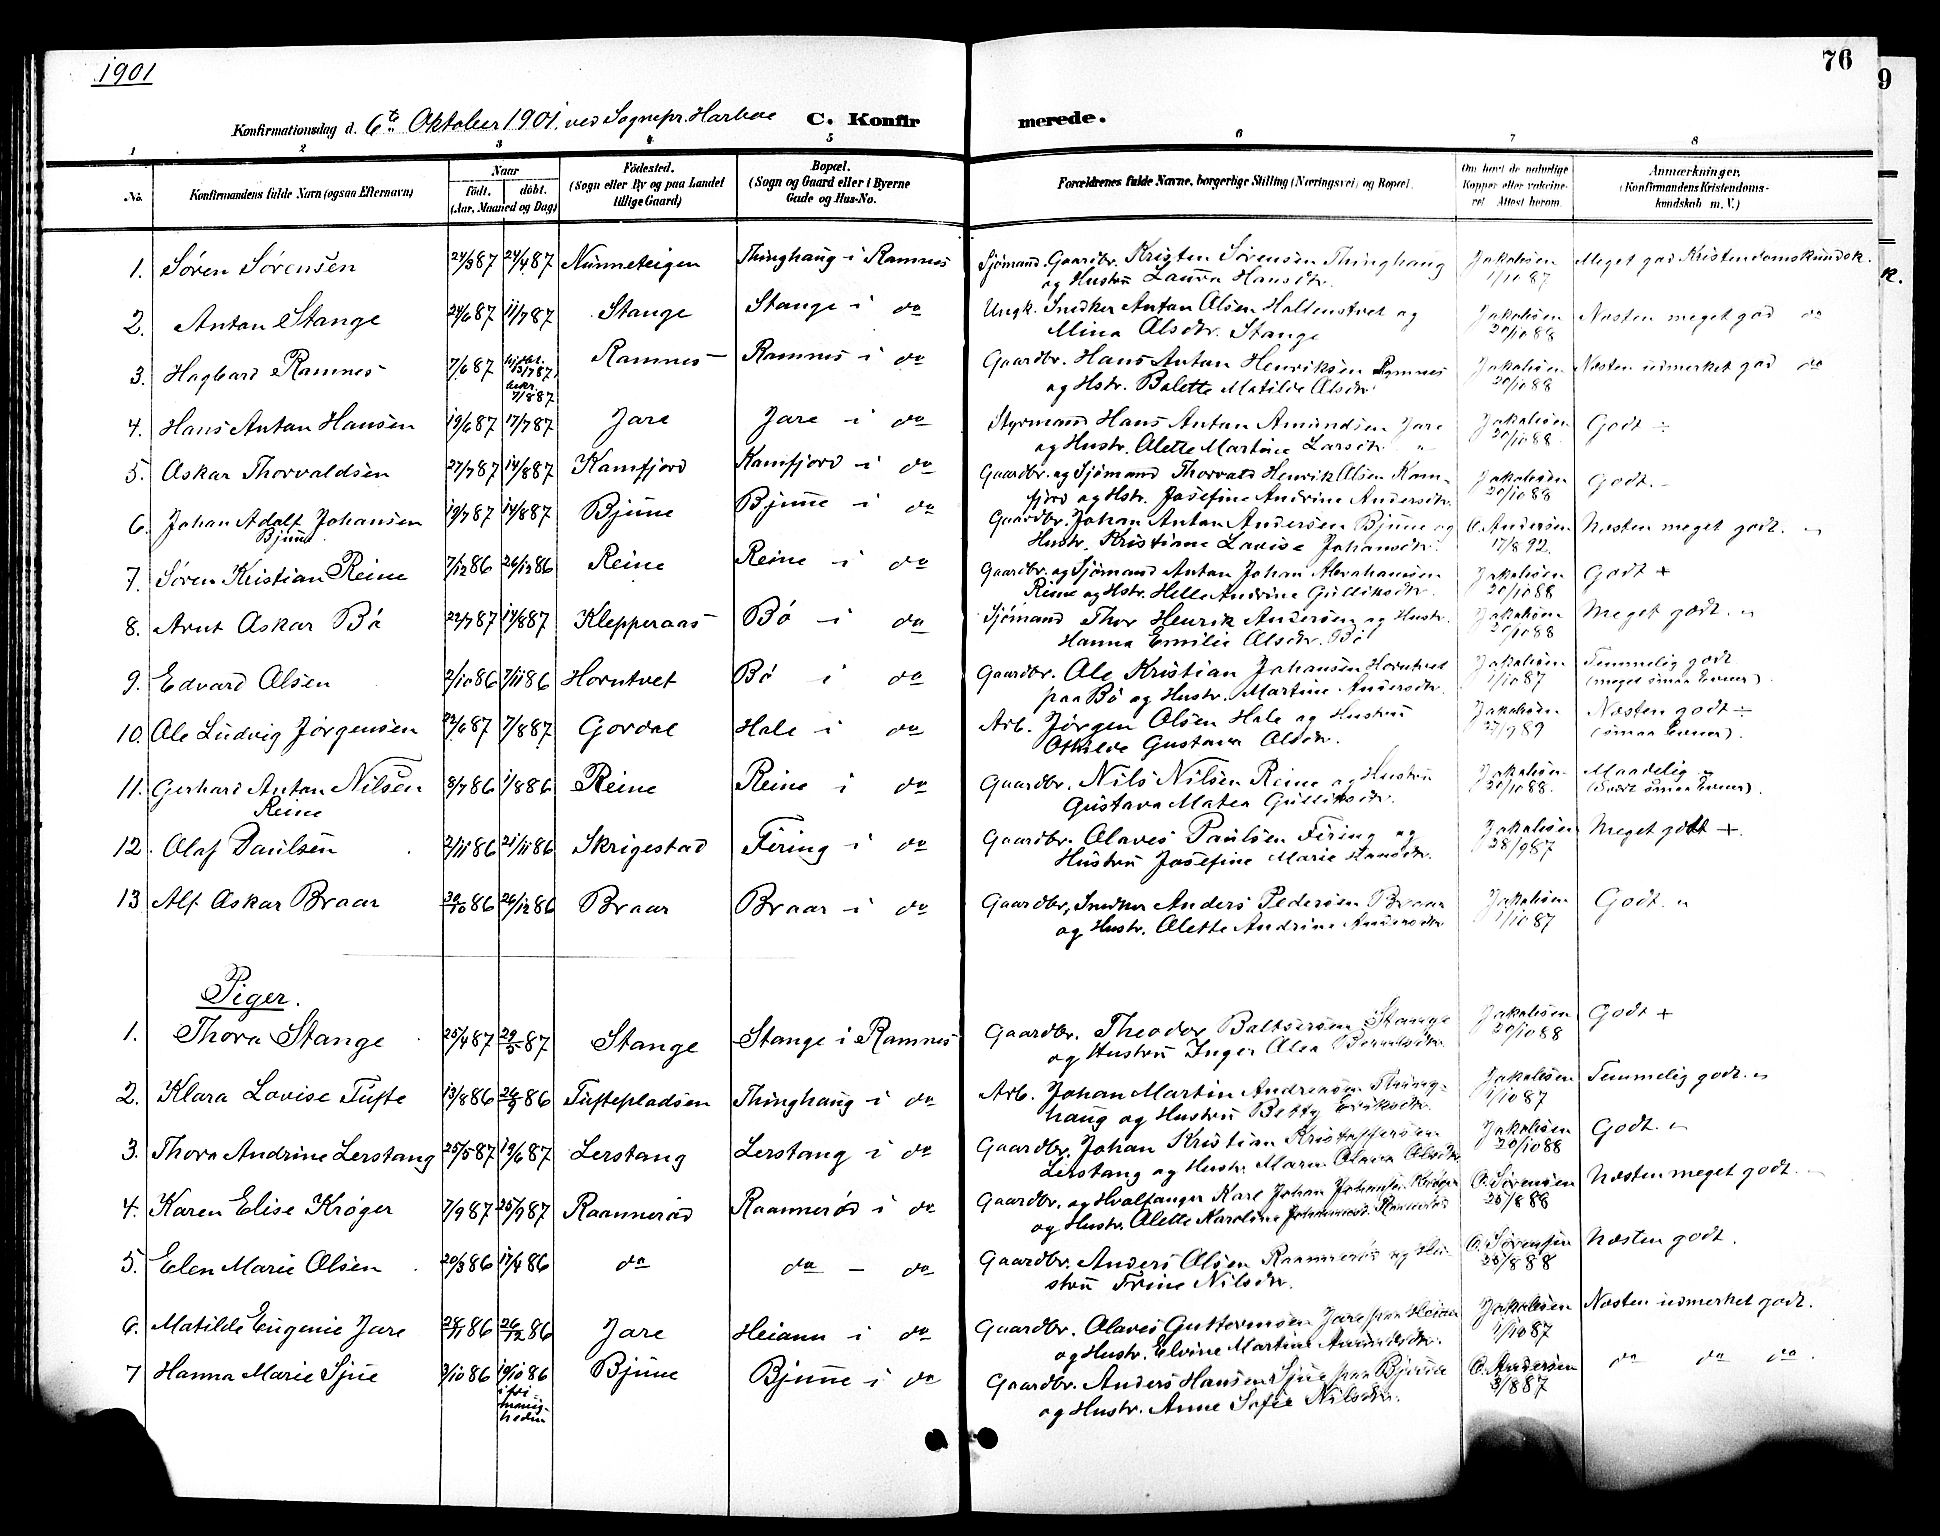 1901
76
9
Konfirmationsdag d. 6te Oktober 1901 ved Sognepr. Harboe C. Konfirmerede.
1 2 3 4 5 6 7 8
No. Konfirmandens fulde Navn (ogsaa Efternavn) Naar født. døbt. (Aar, Maaned og Dag) Fødested. (Sogn eller By og paa Landet tillige Gaard) Bopæl. (Sogn og Gaard eller i Byerne Gade og Hus-No. Forældrenes fulde Navne, borgerlige Stilling (Næringsvei) og Bopæl. Om havt de naturlige Kopper eller vaccineret. Attest herom. Anmærkninger. (Konfirmandens Kristendomskundskab m. V.)
1. Søren Sørensen 24/3 87 24/4 87 Nunneteigen Thinghaug i Ramnes Sjømand. Gaardbr. Kristen Sørensen Thinghaug Jakobsen Meget god Kristendomskundsk.
og Hustru Laura Hansdtr. 1/10 87
2. Anton Stange 24/6 87 11/7 87 Stange Stange i do Ungk. Snedker Anton Olsen Holtenstvet og Jakobsen Næsten meget god do
Mina Olsdtr. Stange 20/10 88
3. Hagbard Ramnes 7/6 87 hjdbt. 13/7 87 Ramnes Ramnes i do Gaardbr. Hans Anton Henriksen Ramnes Jakobsen Næsten udmerket god do
bekr. 7/8 87 og Hstr. Bolette Matilde Olsdtr. 20/10 88
4. Hans Anton Hansen 19/6 87 17/7 87 Jare Jare i do Styrmand Hans Anton Amundsen Jare Jakobsen Godt ÷
og Hustr. Olette Martine Larsdtr. " 20/10 88
5. Oskar Thorvaldsen 27/7 87 14/8 87 Kamfjord Kamfjord i do Gaardbr. og Sjømand Thorvald Henrik Olsen Kam- Jakobsen Godt. –
fjord og Hstr. Josefine Andrine Andersdtr. 20/10 88
6. Johan Adolf Johansen 19/7 87 14/8 87 Bjune Bjune i do Gaardbr. Johan Anton Andersen Bjune og O. Andersen Næsten meget godt. "
Bjune Hustr. Kristiane Lovise Johansdtr. 17/8 92.
7. Søren Kristian Reine 7/12 86 26/12 86 Reine Reine i do Gaardbr. og Sjømand Anton Johan Abrahamsen Jakobsen Godt +
Reine og Hstr. Helle Andrine Gulliksdtr. 20/10 88
8. Arnt Oskar Bø 22/7 87 14/8 87 Klepperaas Bø i do Sjømand Thor Henrik Andersen og Hustr. Jakobsen Meget godt. "
Hanna Emilie Olsdtr. Bø 20/10 88
9. Edvard Olsen 2/10 86 7/11 86 Horntvet Bø i do Gaardbr. Ole Kristian Johansen Horntvet Jakobsen Temmelig godt
paa Bø og Hustr. Martine Andersdtr. 1/10 87 (meget smaa Evner).
10. Ole Ludvig Jørgensen 22/6 87 7/8 87 Gordal Hole i do Arb. Jørgen Olsen Hole og Hustru Jakobsen Næsten godt ÷
Othilde Gustava Olsdtr. 27/9 89 (smaa Evner).
11. Gerhard Anton Nilsen 8/7 86 1/8 86 Reine Reine i do Gaardbr. Nils Nilsen Reine og Hustru Jakobsen Maadelig "
Reine Gustava Matea Gulliksdtr. 20/10 88. (svært smaa Evner).
12. Olaf Paulsen 2/11 86 21/11 86 Skrigestad Firing i do Gaardbr. Olaves Paulsen Firing og Jakobsen Meget godt +.
Hustru Josefine Marie Hansdtr. 28/9 87
13 Alf Oskar Braar 30/10 86 26/12 86 Braar Braar i do Gaardbr, Snedker Anders Pedersen Braar Jakobsen Godt. "
og Hustr. Olette Andrine Andersdtr 1/10 87
Piger.
1. Thora Stange 25/4 87 29/5 87 Stange Stange i Ramnes Gaardbr. Theodor Baltsersen Stange Jakobsen Godt +
og Hustru Inger Olea 20/10 88
2. Klara Lovise Tufte 13/8 86 26/9 86 Tuftepladsen Thinghaug i do Arb. Johan Martin Andreasen Thing- Jakobsen Temmelig godt. "
haug og Hustru Betty Eriksdtr. 1/10 87
3. Thora Andrine Lerstang 25/5 87 19/6 87 Lerstang Lerstang i do Gaardbr. Johan Kristian Kristoffersen Jakobsen Godt. "
Lerstang og Hustr. Maren Olava Olsdtr 20/10 88
4. Karen Elise Krøger 7/9 87 25/9 87 Raannerød Raannerød i do Gaardbr. og Hvalfanger Karl Johan Johansen Krøger O. Sørensen Næsten meget godt.
og Hustr. Olette Karoline Johannesd. Raannerød 25/8 88
5. Elen Marie Olsen 20/3 86 17/4 86 do do – do Gaardbr. Anders Olsen Raannerød og Hu- O. Sørensen Næsten godt.
stru Trine Nilsdtr. 25/8 88
6. Matilde Eugenie Jare 28/11 86 26/12 86 Jare Heiann i do Gaardbr. Olaves Guttormsen Jare paa Heian Jakobsen Næsten udmerket godt.
og Hustr. Elvine Martine Amundsdtr. 1/10 87
7 Hanna Marie Sjue 3/10 86 19/10 86 Bjune Bjune i do Gaardbr. Anders Hansen Sjue paa Bjunne O. Andersen do do do.
i fri- og Hustr. Anne Sofie Nilsdtr. 3/8 87
menig-
heden
k.